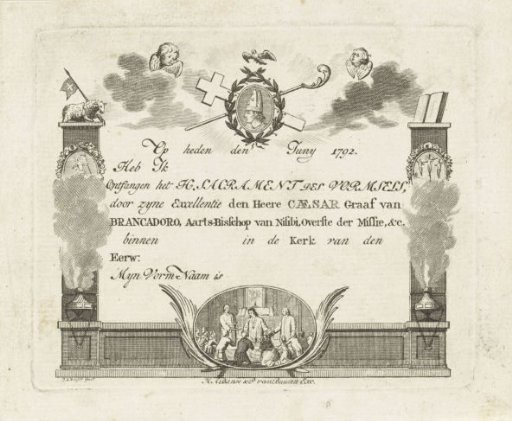 Op heden den Juny 1792.
Heb Ik
Ontfangen het H. SACRAMENT DES VORMSELS,
door zyne Excellentie den Heere CÆSAR Graaf van
BRANCADORO, Aarts-Bisschop van Nisibi, Overste der Missie, &c.
binnen in de Kerk van den
Eerw:
Myn Vorm Naam is